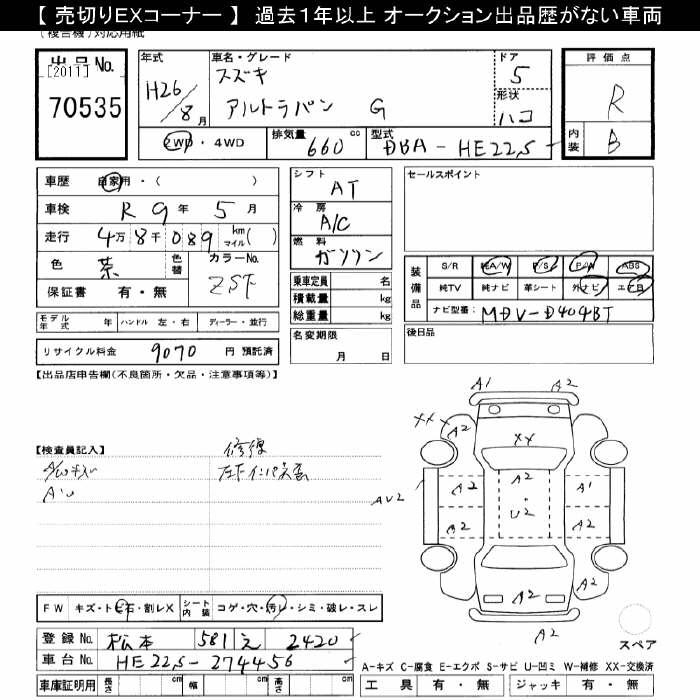 【 売切りEXコーナー 】 過去1年以上 オークション出品歴がない車両
(複合機)対応用紙
出品No.
[2011]
70535
年式
H26/8月
車名・グレード
スズキ
アルトラパン G
ドア
5
形状
ハコ
評価点
R
内装
B
2WD・4WD
排気量 660 cc
型式 DBA-HE22S
車歴 自家用・( )
車検 R9年5月
走行 4万8千089 km マイル( )
色 茶
色替
カラーNo. ZSF
保証書 有・無
モデル年式 年 ハンドル 左・右 ディーラー・並行
リサイクル料金 9070 円 預託済
シフト
AT
冷房
A/C
燃料
ガソリン
乗車定員 名
積載量 kg
総重量 kg
名変期限
月 日
セールスポイント
装備品
S/R 純A/W P/S P/W ABS
純TV 純ナビ 革シート 外ナビ エアB
ナビ型番: MDV-D404BT
後日品
【出品店申告欄(不良箇所・欠品・注意事項等)】
【検査員記入】
修復
A/Wキズ
A1 A2
XXX A2
XX
A2 A2 A1
AU2
U2
A2 A2
A2
A2
FW キズ・ト石・割レX シート内装 コゲ・穴・汚レ・シミ・破レ・スレ
登録No. 松本 581 え 2420
車台No. HE22S-274456
車庫証明用 長さ cm 幅 cm 高さ cm
スペア
A-キズ C-腐食 E-エクボ S-サビ U-凹ミ W-補修 XX-交換済
工具 有・無 ジャッキ 有・無